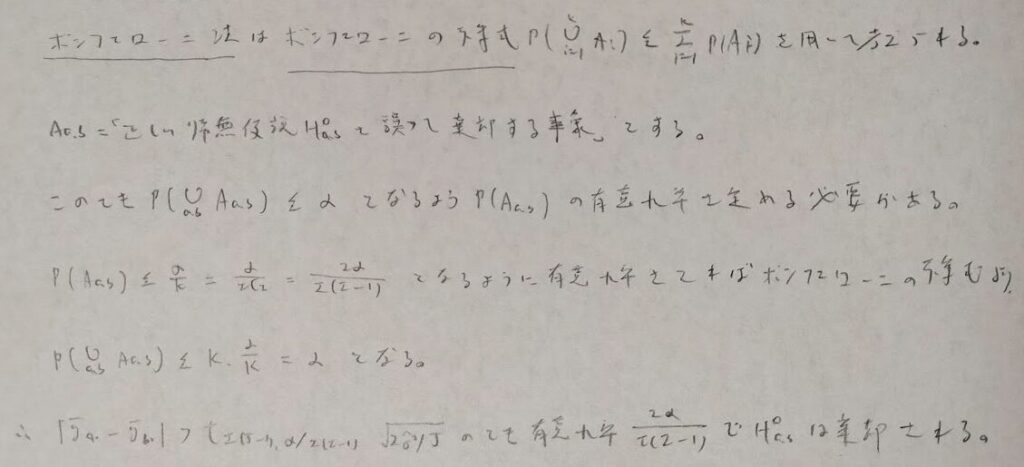 ボンフェローニ法はボンフェローニの不等式 P(⋃_{i=1}^{k} A_i) ≦ Σ_{i=1}^{k} P(A_i) を用いて考えられる。
A_{a,b} = 「正しい帰無仮説 H^0_{a,b} を誤って棄却する事象」とする。
このとき P(⋃_{a,b} A_{a,b}) ≦ α となるよう P(A_{a,b}) の有意水準を定める必要がある。
P(A_{a,b}) ≦ α/k = α/_I C_2 = 2α/I(I-1) となるように有意水準をとればボンフェローニの不等式より,
P(⋃_{a,b} A_{a,b}) ≦ K・α/K = α となる。
∴ |ȳ_{a・} - ȳ_{b・}| > t_{I(J-1), α/I(I-1)} √(2σ̂²/J) のとき有意水準 2α/I(I-1) で H^0_{a,b} は棄却される。